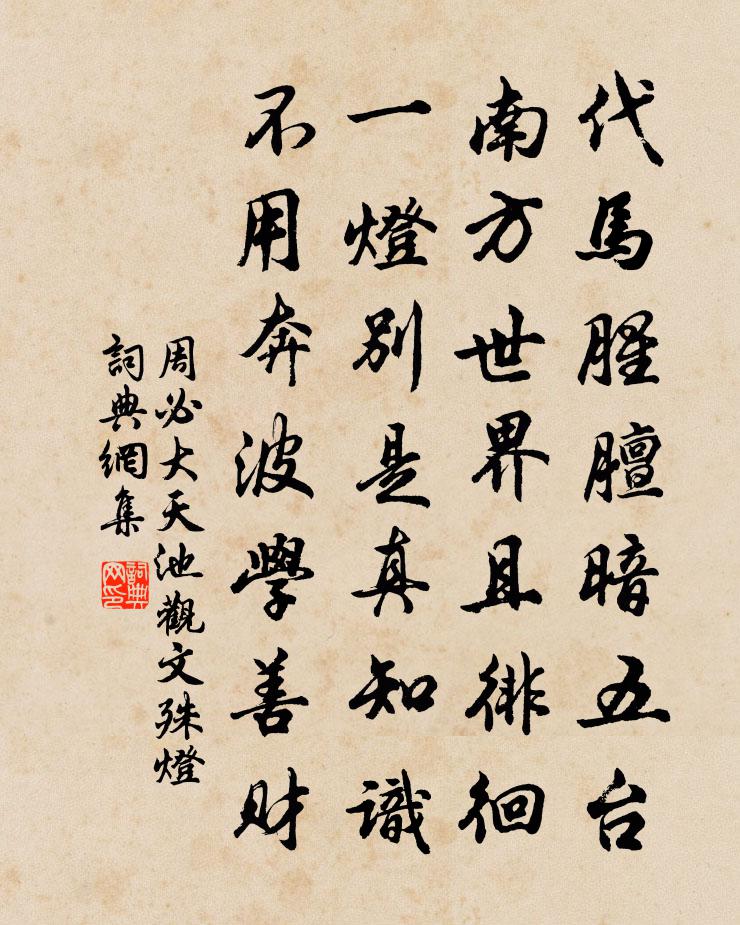 代馬腥膻暗五台
南方世界且徘徊
一燈別是真知識
不用奔波學善財
周必大天池觀文殊燈
詞典網集
詞典网印